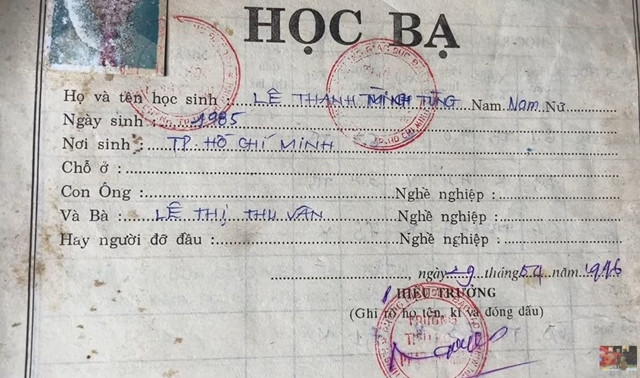 HỌC BẠ
Họ và tên học sinh : LÊ THANH MINH TÙNG Nam Nam Nữ
Ngày sinh : 1985
Nơi sinh : TP. HỒ CHÍ MINH
Chỗ ở :
Con Ông : Nghề nghiệp :
Và Bà : LÊ THỊ THU VÂN Nghề nghiệp :
Hay người đỡ đầu : Nghề nghiệp :
ngày 29 tháng 5 năm 1996
HIỆU TRƯỞNG
(Ghi rõ họ tên, kí và đóng dấu)
TRƯỜNG